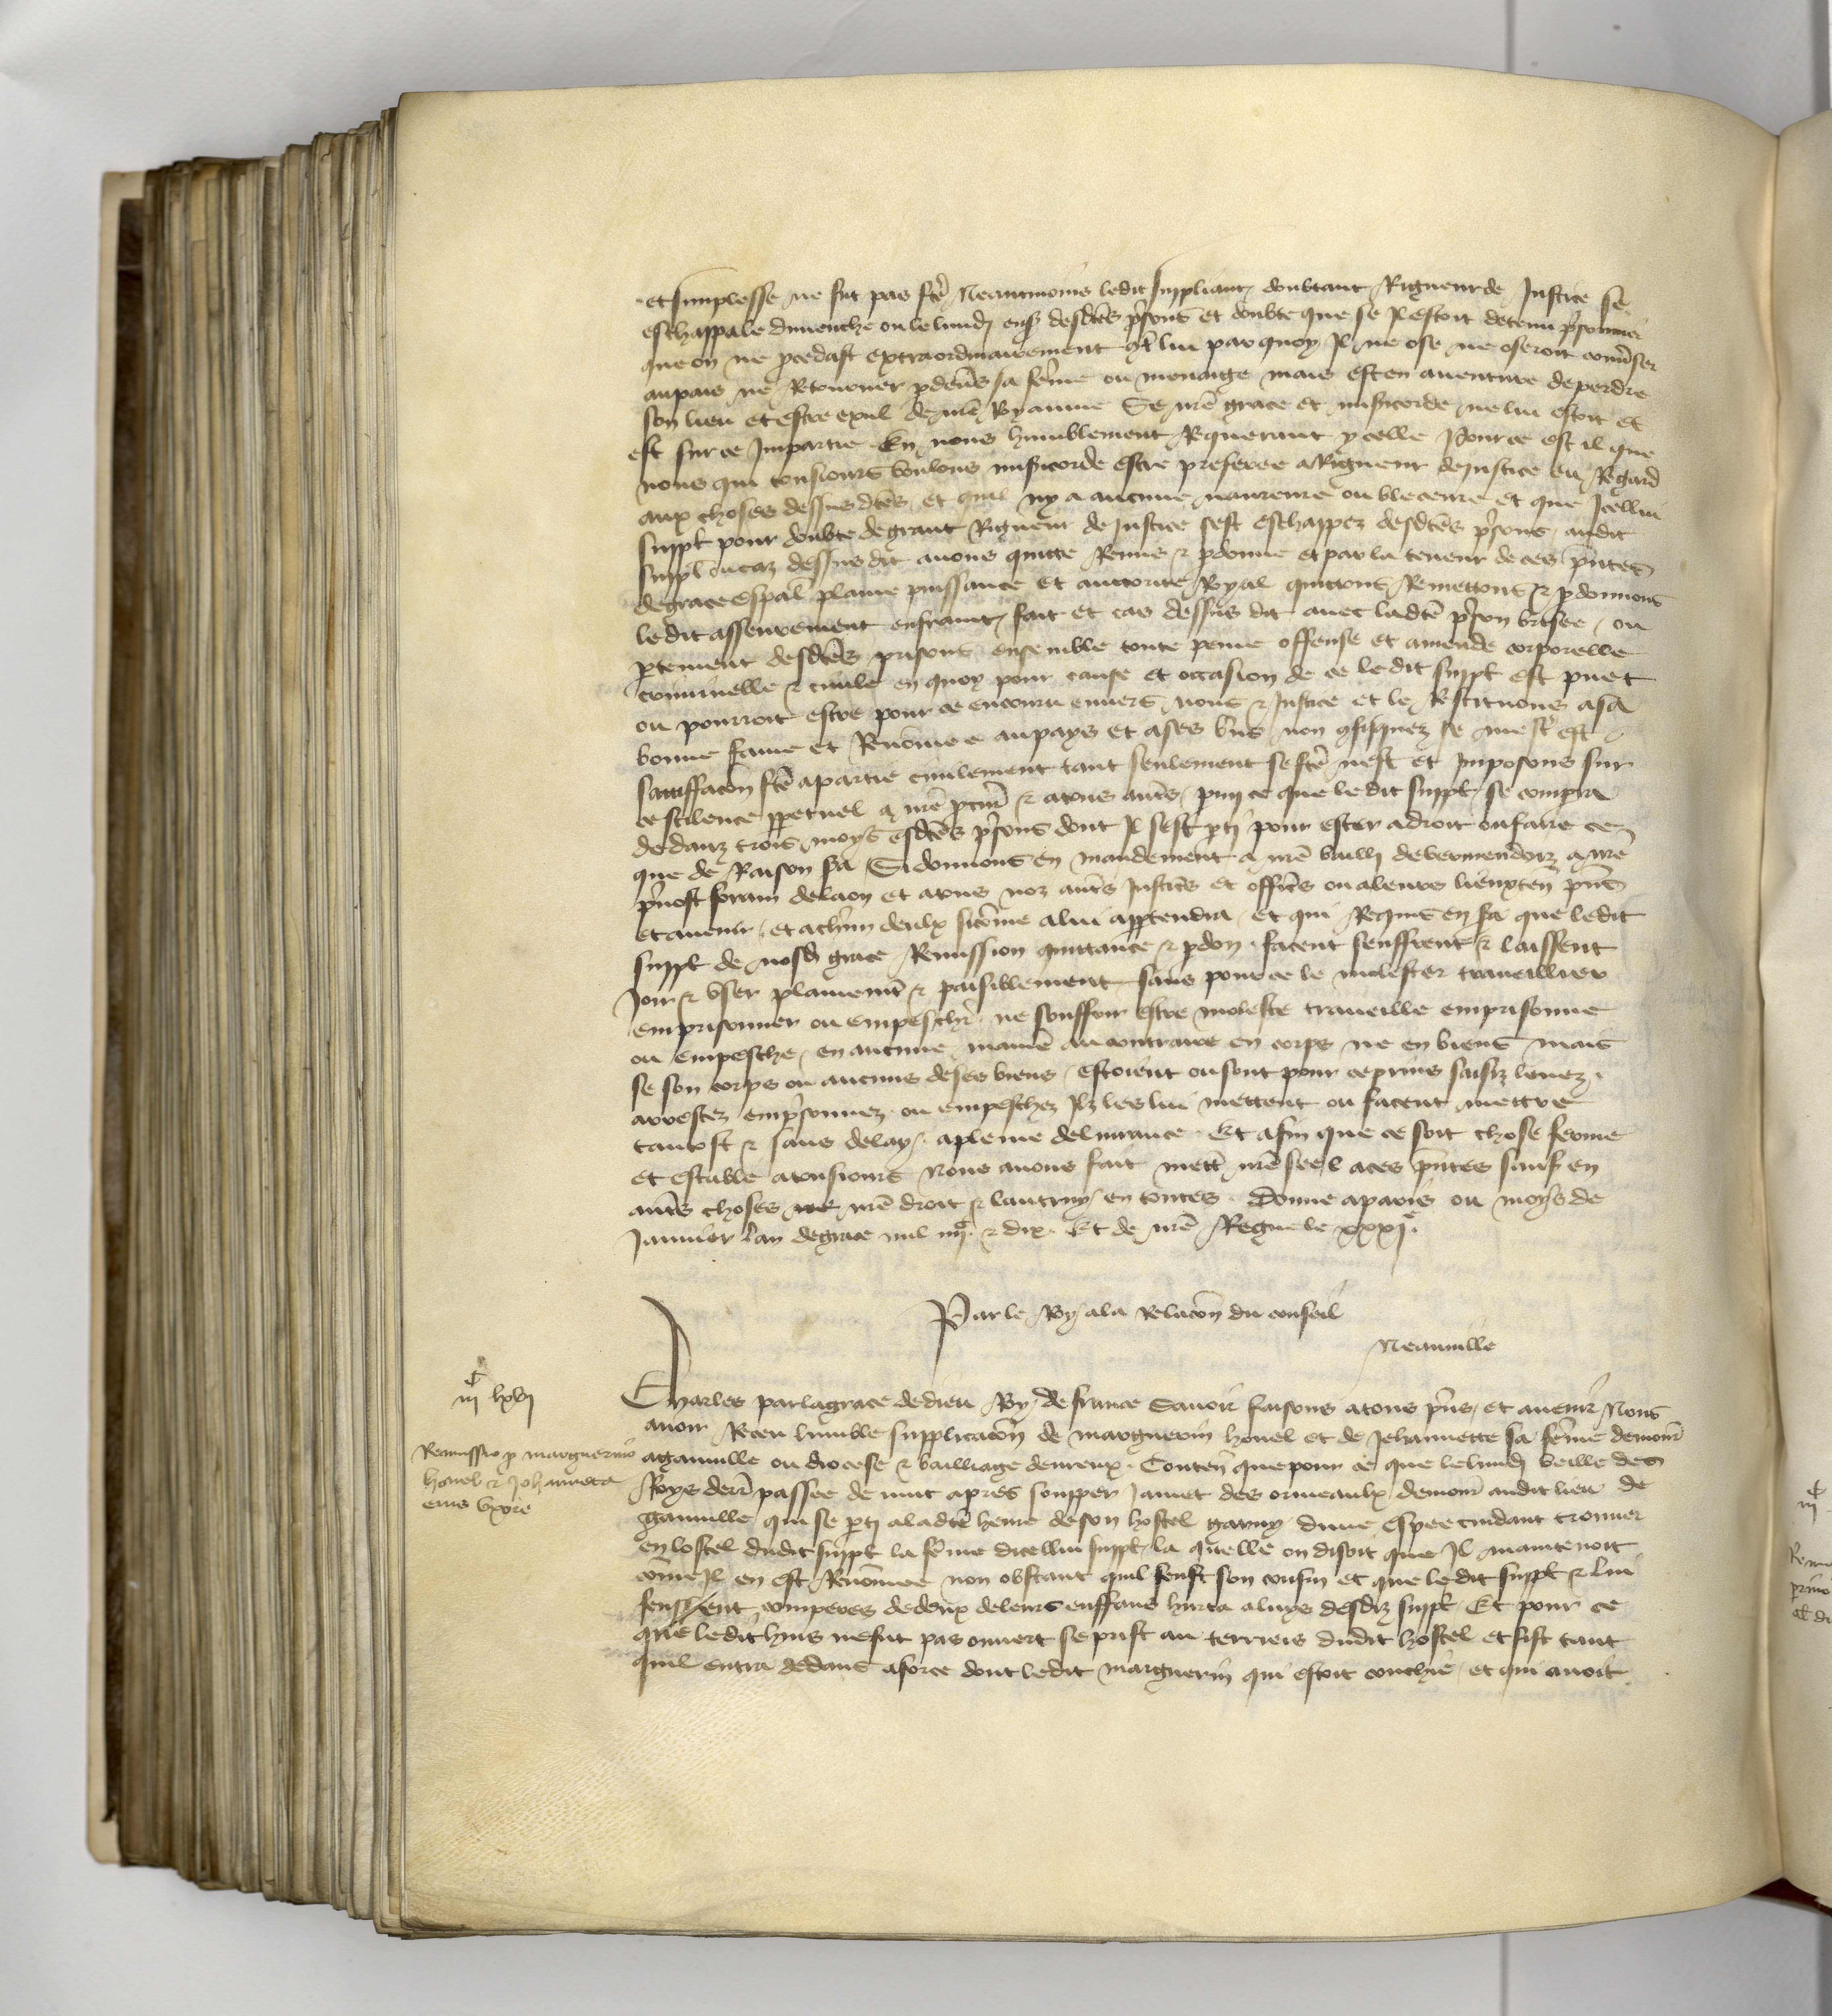 et simplesse ne fut pas fce Neantmoins ledit suppliant doubtant Rigueur de Justice se
eschappa le dimenche ou le lundi ens desdces prisons et doubte que se Il estoit detenu prisonnier
que on ne pcedast extraordinairement contre lui par quoy Il ne ose ne oseroit converser
au pais ne Retourner p devers sa feme ou menaige mais est en aventure de perdre
son lieu et estre exul de nre Royaume Se nre grace et misericorde ne lui estoit et
est sur ce Impartie En nous humblement Requerant ycelle Pour ce est il que
nous qui tousiours voulons misericorde estre preferee a Rigueur de Justice eu Regard
aux choses dessus dces et quil ny a aucune navreure ou bleceure et que Icellui
suppt pour doubte de grant Rigueur de Justice sest eschappez desdces prisons audit
suppl ou caz dessus dit avons quitte Remis & pdonne et par la teneur de ces pntes
de grace espal plaine puissance et auctorite Royal quittons Remettons & pdonnons
ledit asseurement enfraint fait et cas dessus dit avec ladce prison brisee ou
ptement desdces prisons ensemble toute peine offense et amende corporelle
criminelle & civile en quoy pour cause et occasion de ce ledit suppt est puet
ou pourroit estre pour ce encouru envers nous & Justice et le Restituons a sa
bonne fame et Renomee au pays et a ses bns non confisquez se mest est
satiffacon fce a partie civilement tant seulement se fce nest et Imposons sur
ce scilence ppetuel a nre pcur & a tous aues pmy ce que ledit suppt se compra
dedans trois moys esdces prisons dont Il sest pti pour ester a droit ou faire ce
que de Raison sa Si donnons en mandement a nre bailli de vermendoiz a nre
prevost forain de laon et a tous noz aues Justices et offices ou a leurs lieuxten pns
et avenir et a chun deulx sicome a lui apptendra et qui Requis en sa que ledit
suppt de nosd grace Remission quittance & pdon facent seuffrent & laissent
Joir & user plainemt & paisiblement sans pour ce le molester traveillier
emprisonner ou empescher ne souffrir estre moleste traveille emprisonne
ou empesche en aucune maniere au contraire en corps ne en biens mais
se son corps ou aucuns de ses biens estoient ou sont pour ce prins saisiz levez
arrestez emprisonnez ou empeschez Ilz les lui mettent ou facent mettre
tantost & sans delay a pleine delivrance Et afin que ce soit chose ferme
et estable a tousiours Nous avons fait mett nre seel a ces pntes sauf en
aues choses nre droit & lautruy en toutes Donne a paris ou moys de
Janvier lan de grace mil iiijc & dix Et de nre Regne le xxxje
Par le Roy a la Relacon du conseil
Neauville
iijc lxvij
Remissio p marguerino
houel & Johanneta
eius uxore
Charles par la grace de dieu Roy de france Savoir faisons a tous pns et avenir Nous
avoir Receu lumble supplicacon de marguerin houel et de Jehannette sa feme demour
a gauville ou diocese & bailliage devreux Conten que pour ce que le lundi veille des
Roys derr passee de nuit apres soupper Jamet des ormeaulx demour audit lieu de
gauville qui se pti a ladce heure de son hostel garny dune espee cuidant trouver
en lostel dudit suppt la feme dicellui suppt la quelle on disoit que Il maintenoit
come Il en est Renomee non obstant quil feust son cousin et que ledit suppt & lui
feussent comperes de deux de leurs enffans hurta a luys desdiz suppt Et pour ce
que ledit huis ne fut pas ouvert se prist au terrieis dudit hostel et fist tant
quil entra dedans a force dont ledit marguerin qui estoit couchie et qui avoit